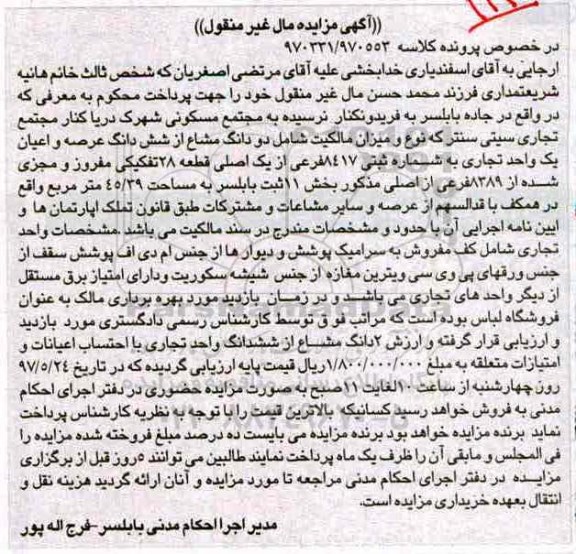 ((آگهی مزایده مال غیر منقول))
در خصوص پرونده کلاسه ۹۷۰۳۳۱/۹۷۰۵۵۳
ارجایی به آقای اسفندیاری خدابخشی علیه آقای مرتضی اصغریان که شخص ثالث خانم هانیه
شریعتمداری فرزند محمد حسن مال غیر منقول خود را جهت پرداخت محکوم به معرفی که
در واقع در جاده بابلسر به فریدونکنار نرسیده به مجتمع مسکونی شهرک دریا کنار مجتمع
تجاری سیتی سنتر که نوع و میزان مالکیت شامل دو دانگ مشاع از شش دانگ عرصه و اعیان
یک واحد تجاری به شماره ثبتی ۸۴۱۷فرعی از یک اصلی قطعه ۲۸تفکیکی مفروز و مجزی
شده از ۸۳۸۹فرعی از اصلی مذکور بخش ۱۱ثبت بابلسر به مساحت ۴۵/۳۹ متر مربع واقع
در همکف با قدالسهم از عرصه و سایر مشاعات و مشترکات طبق قانون تملک اپارتمان ها و
ایین نامه اجرایی آن با حدود و مشخصات مندرج در سند مالکیت می باشد .مشخصات واحد
تجاری شامل کف مفروش به سرامیک پوشش و دیوار ها از جنس ام دی اف پوشش سقف از
جنس ورقهای پی وی سی ویترین مغازه از جنس شیشه سکوریت ودارای امتیاز برق مستقل
از دیگر واحد های تجاری می باشد و در زمان بازدید مورد بهره برداری مالک به عنوان
فروشگاه لباس بوده است که مراتب فوق توسط کارشناس رسمی دادگستری مورد بازدید
و ارزیابی قرار گرفته و ارزش ۲دانگ مشاع از ششدانگ واحد تجاری با احتساب اعیانات و
امتیازات متعلقه به مبلغ ۱/۸۰۰/۰۰۰/۰۰۰ریال قیمت پایه ارزیابی گردیده که در تاریخ ۹۷/۵/۲۴
روز چهارشنبه از ساعت ۱۰لغایت ۱۱صبح به صورت مزایده حضوری در دفتر اجرای احکام
مدنی به فروش خواهد رسید کسانیکه بالاترین قیمت را با توجه به نظریه کارشناس پرداخت
نماید برنده مزایده خواهد بود برنده مزایده می بایست ده درصد مبلغ فروخته شده مزایده را
فی المجلس و مابقی آن را ظرف یک ماه پرداخت نمایند طالبین می توانند ۵روز قبل از برگزاری
مزایده در دفتر اجرای احکام مدنی مراجعه تا مورد مزایده و آنان ارائه گردید هزینه نقل و
انتقال بعهده خریداری مزایده است.
مدیر اجرا احکام مدنی بابلسر-فرج اله پور